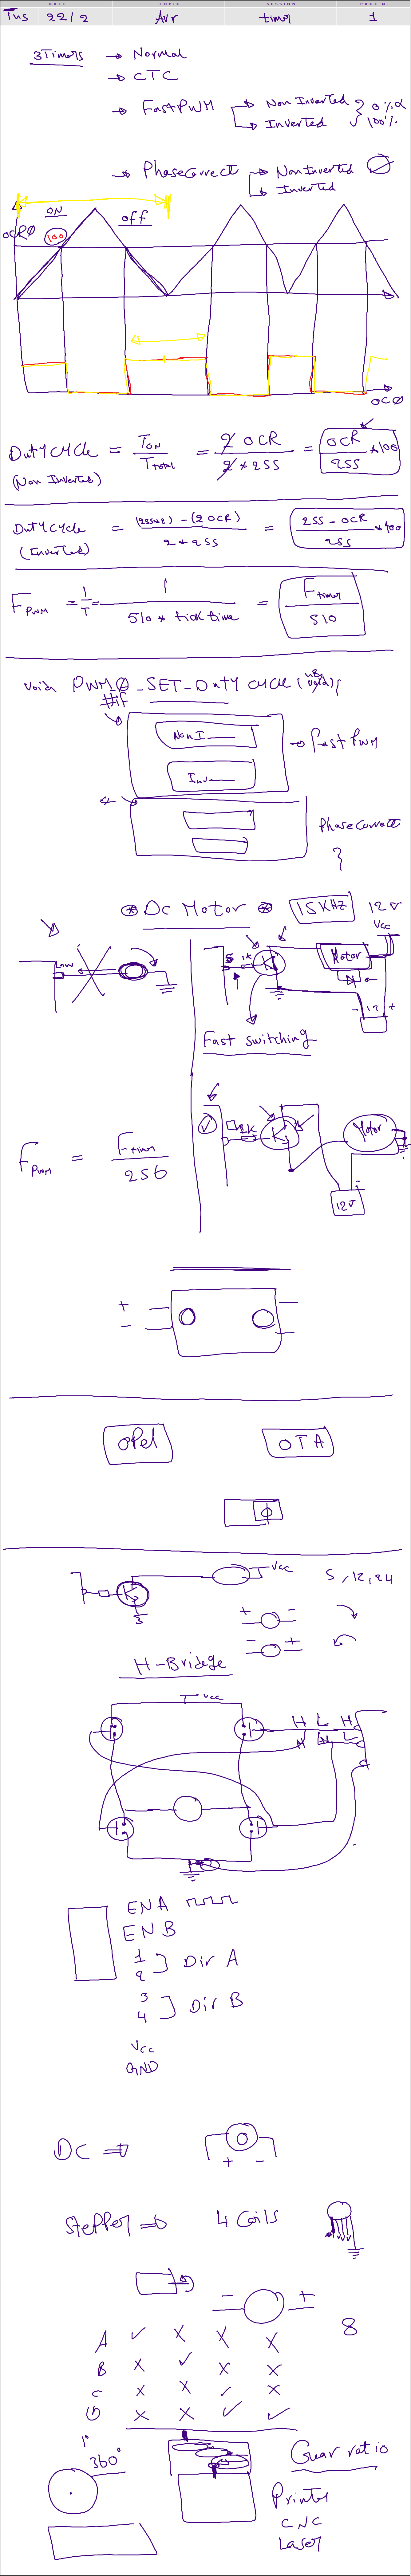 DATE TOPIC SESSION PAGE N.
Tus 22/2 Avr timer 1
3Timers → Normal
→ CTC
→ FastPWM → Non Inverted
→ Inverted
0%
100%
→ PhaseCorrect → NonInverted
→ Inverted
ON
off
OCR0 100
OC0
Duty Cycle = Ton / Ttotal = 2 OCR / 2 * 255 = OCR / 255 * 100
(Non Inverted)
Duty Cycle = (255*2) - (2 OCR) / 2 * 255 = 255 - OCR / 255 * 100
(Inverted)
FPWM = 1/T = 1 / 510 * tick time = Ftimer / 510
void PWM_0_SET_Duty Cycle (
#if
Non I
→ fast PWM
Inve
Phase Correct
}
* Dc Motor * 15KHZ 12v
Vcc
5 1K Motor
- 12 +
Fast switching
FPWM = Ftimer / 256
1K Motor
12v
+
-
oPel OTA
Vcc 5, 12, 24
+ -
- +
H-Bridege
Vcc
H L H
H H L
ENA
ENB
1
2 ] Dir A
3
4 ] Dir B
Vcc
GND
DC ⇒
+ -
Stepper ⇒ 4 Coils
- +
8
A ✓ X X X
B X ✓ X X
C X X ✓ X
D X X ✓ ✓
1°
360°
Gear ratio
Printer
CNC
Laser